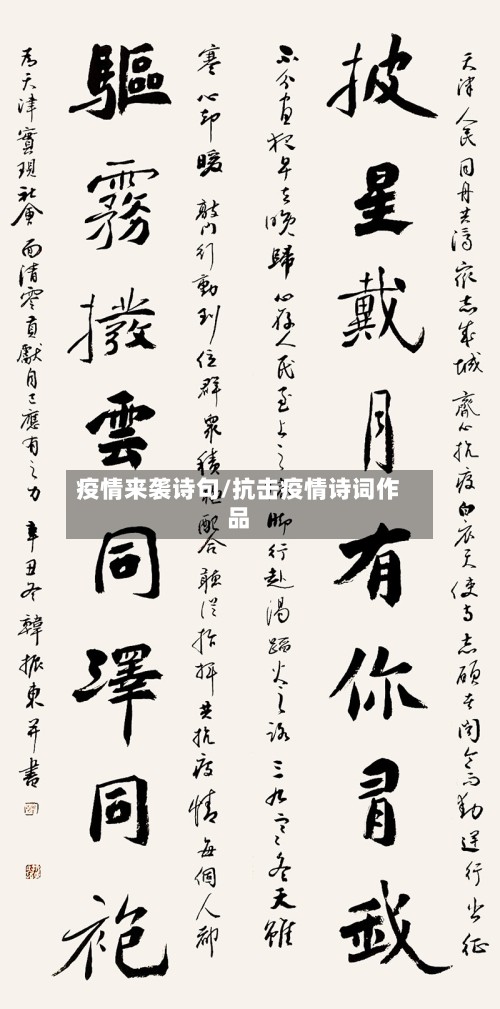 天津人民同舟共濟 眾志成城 齊心抗疫 白衣天使与志願者闻令而動 逆行出征
披星戴月有你有我
不分昼夜早去晚歸 心存人民至上之 脚行赴湯蹈火之路 三九寒冬天雖
寒心却暖 敲门行動到位 群衆積極配合 聽從指揮 共抗疫情 每個人都
驅霧撥雲同澤同袍
为天津實現社會面清零貢獻自己應有之力 辛丑冬 韓振東并書
疫情来袭诗句/抗击疫情诗词作
品